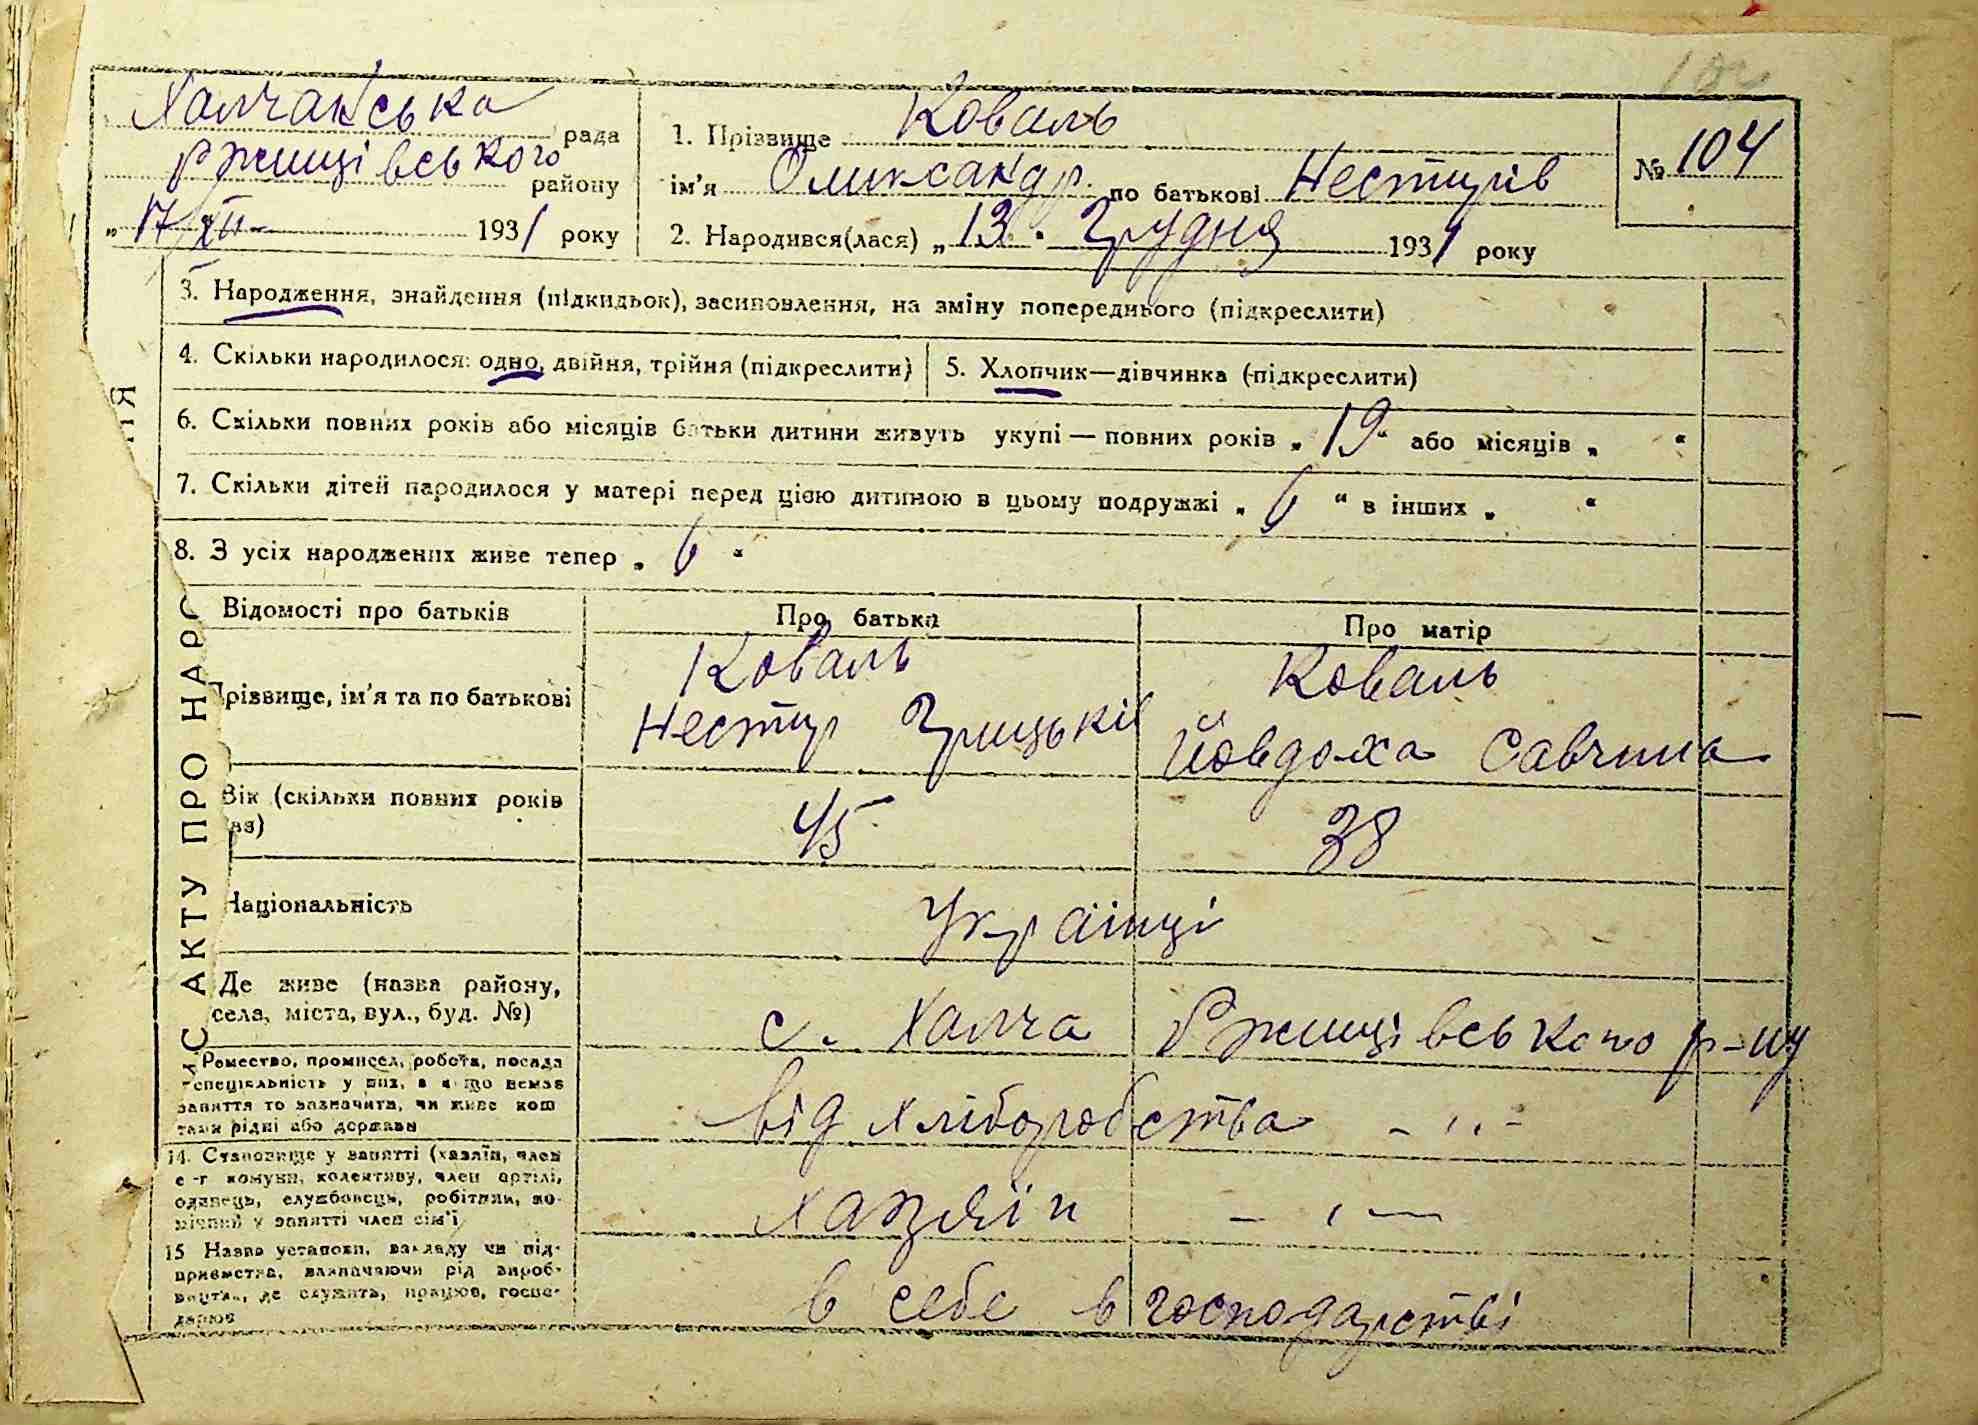 102
Халчанська рада
Ржищівського району
„17 XII- 1931 року
1. Прізвище Коваль
ім'я Олександр. по батькові Нестирів
2. Народився(лася) „13. Грудня 1931 року
№ 104
3. Народження, знайдення (підкидьок), засиновлення, на зміну попереднього (підкреслити)
4. Скільки народилося: одно, двійня, трійня (підкреслити)
5. Хлопчик—дівчинка (підкреслити)
6. Скільки повних років або місяців батьки дитини живуть укупі — повних років „ 19 “ або місяців „ “
7. Скільки дітей народилося у матері перед цією дитиною в цьому подружжі „ 6 “ в інших „ “
8. З усіх народжених живе тепер „ 6 “
С АКТУ ПРО НАРО
НЯ
Відомості про батьків
Про батька
Про матір
Прізвище, ім'я та по батькові
Коваль
Нестир Грицьків
Коваль
Йовдоха Савчина
Вік (скільки повних років
45
38
Національність
Українці
Де живе (назва району,
села, міста, вул., буд. №)
с. Халча Ржищівського р-ну
Ремество, промисел, робота, посада
спеціяльність у них, а що немає
заняття то зазначити, чи живе кош
тами рідні або держави
від хліборобства - ,, -
14. Становище у занятті (хазяїн, член
с-г комуни, колективу, член артілі,
одинець, службовець, робітник, по-
мічний у занятті член сім'ї
хазяїн - , —
15 Назва установи, закладу чи під-
приємства, зазначаючи рід вироб-
ництва, де служить, працює, госпо-
дарює
в себе в господарстві